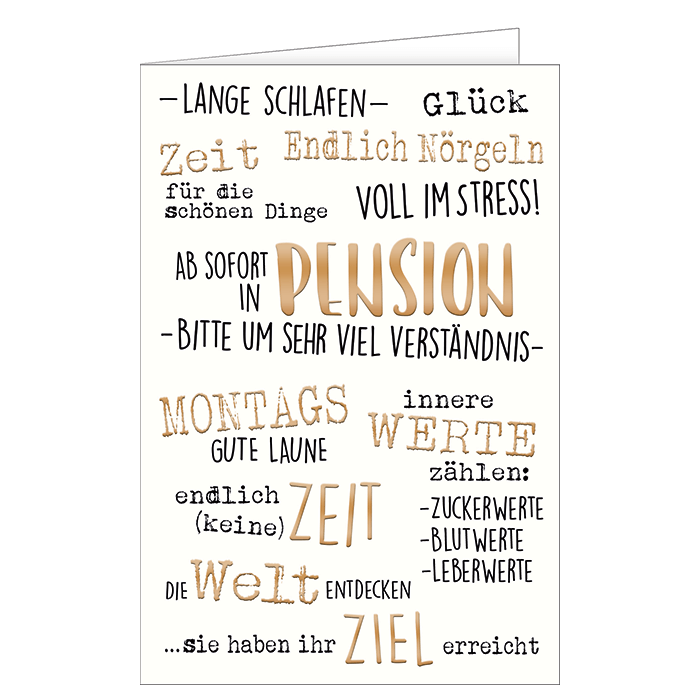 -LANGE SCHLAFEN-
Glück
Zeit
für die
schönen Dinge
Endlich Nörgeln
VOLL IM STRESS!
AB SOFORT
IN
PENSION
-BITTE UM SEHR VIEL VERSTÄNDNIS-
MONTAGS
GUTE LAUNE
innere
WERTE
zählen:
-ZUCKERWERTE
-BLUTWERTE
-LEBERWERTE
endlich
(keine) ZEIT
DIE Welt ENTDECKEN
...sie haben ihr ZIEL erreicht